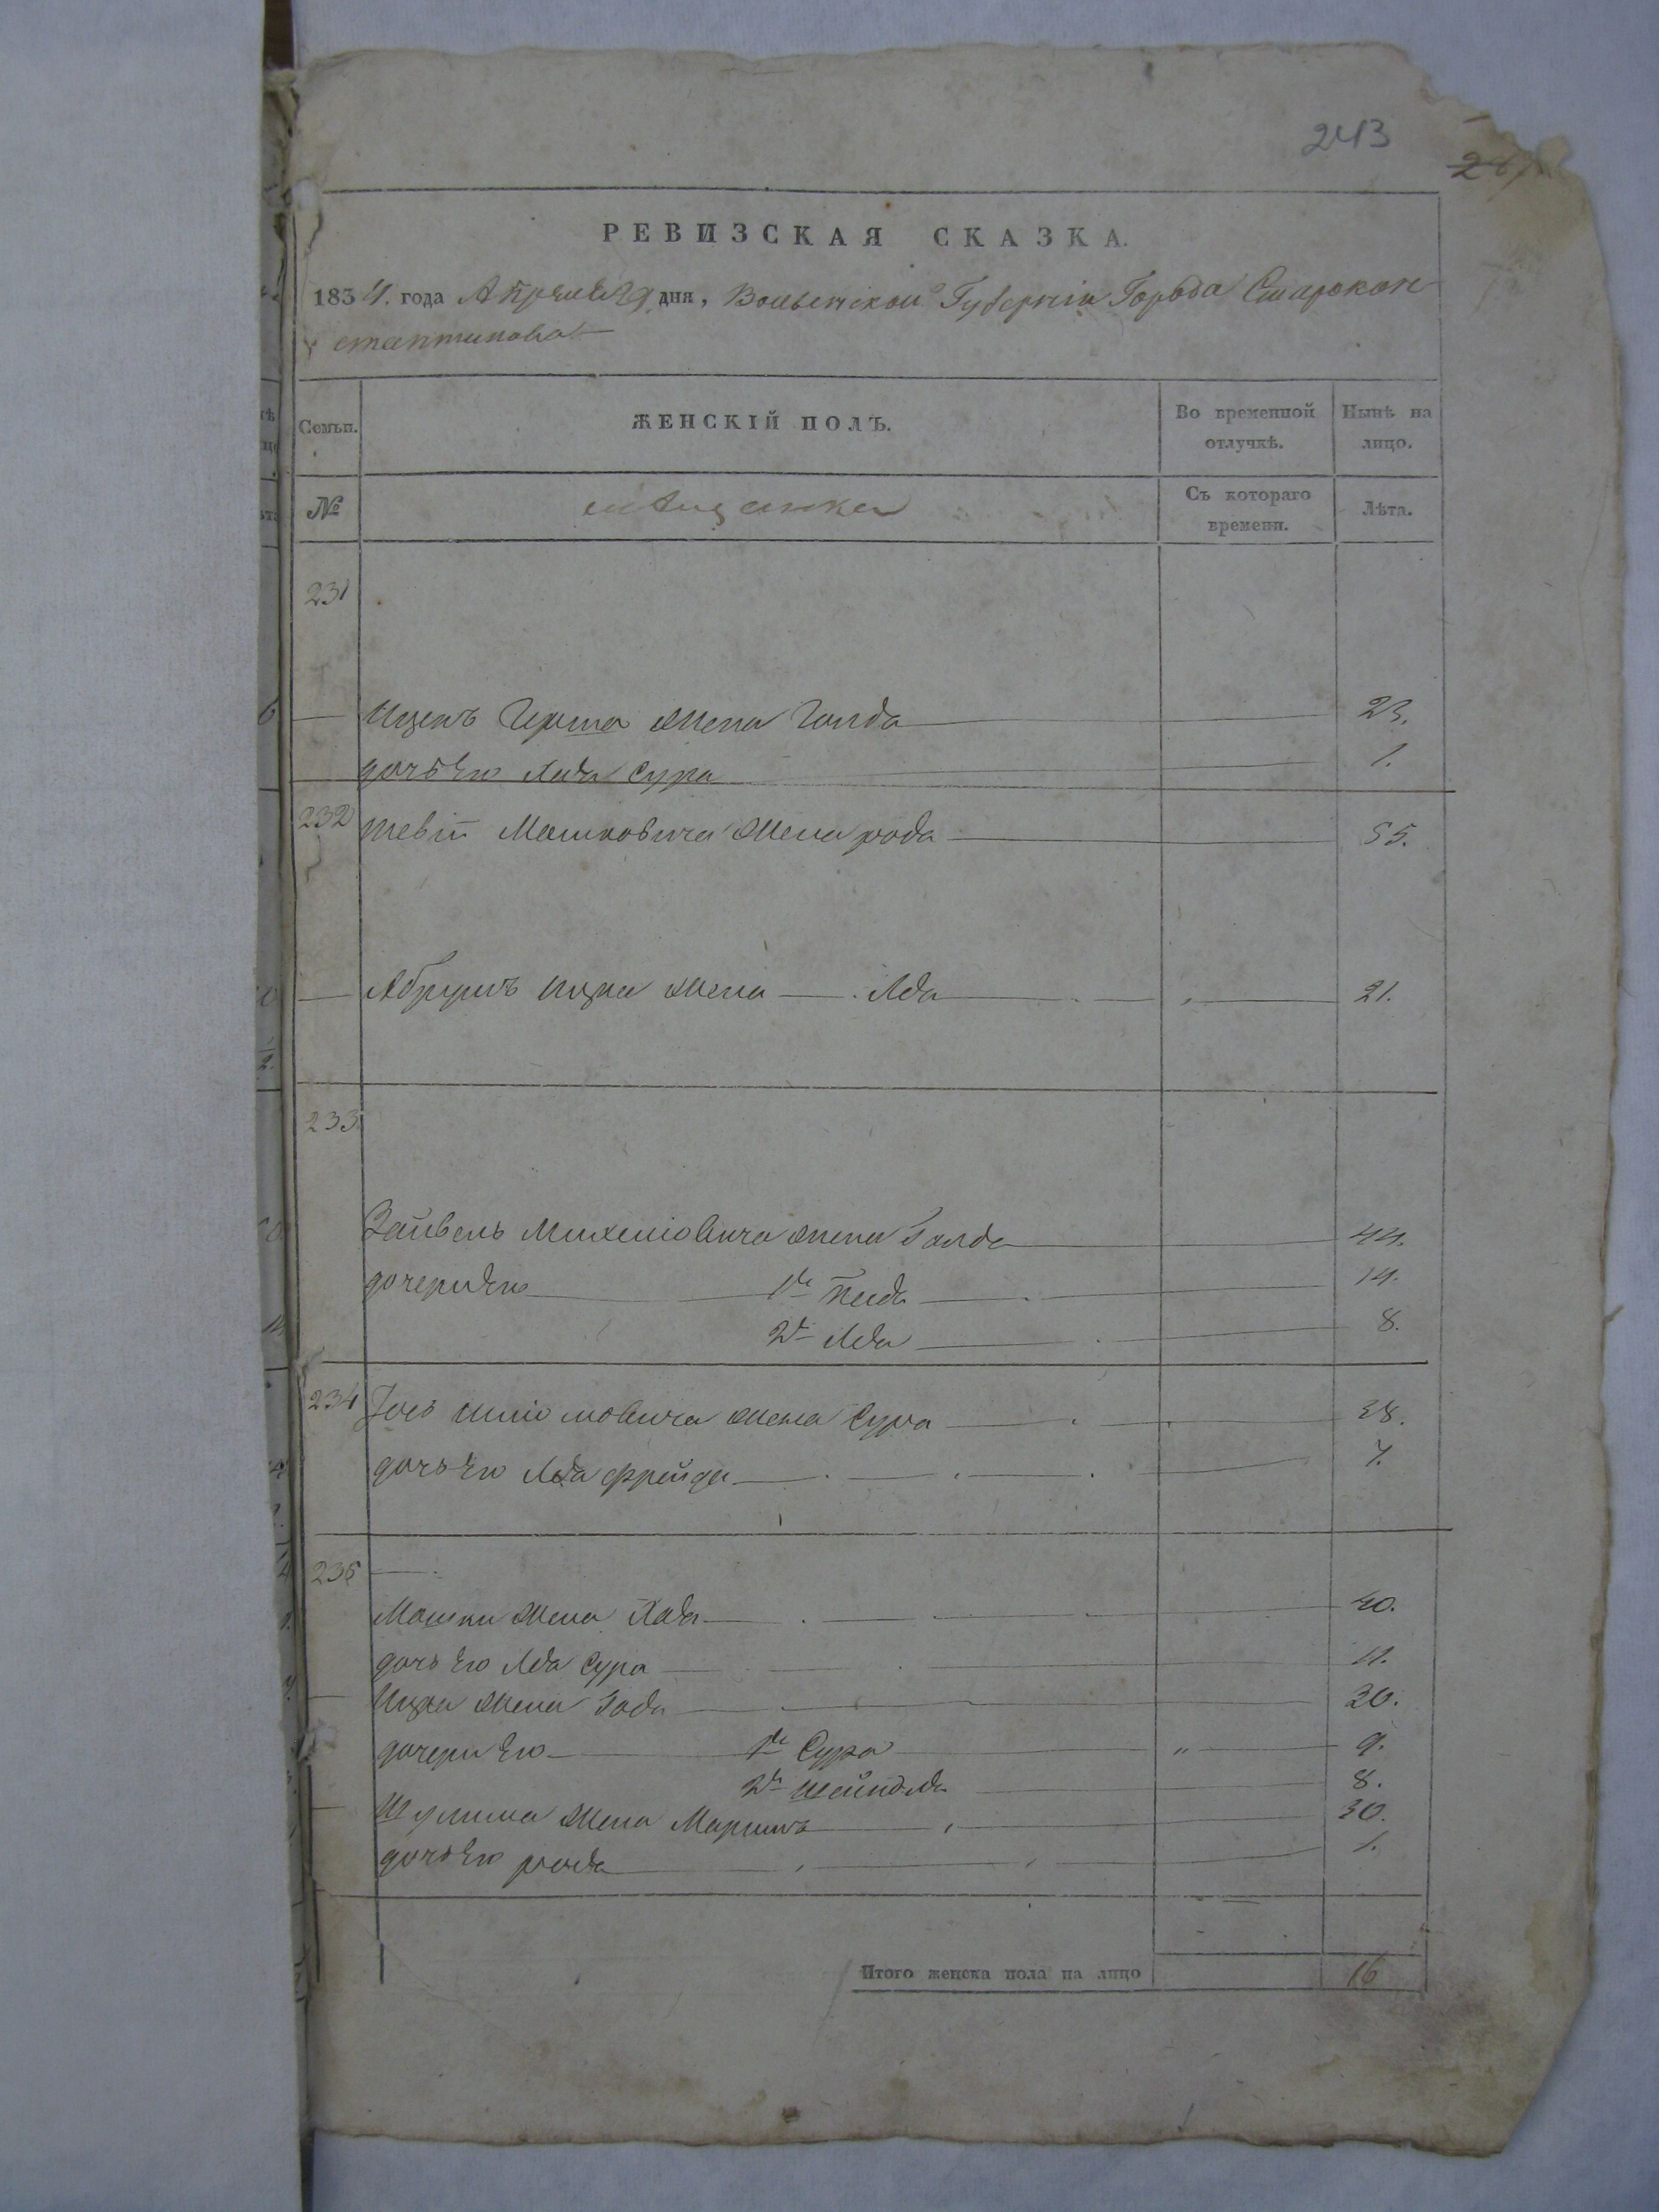 243
РЕВИЗСКАЯ СКАЗКА.
1834. года Апреля 29 дня, Волынской Губерніи Города Старокон
стантинова
Семьи. ЖЕНСКІЙ ПОЛЪ. Во временной отлучкѣ. Нынѣ на лицо.
№ мѣщанки Съ котораго времени. Лѣта.
231
Ицекъ Герша жена Голда 23.
дочь Его Хая Сура 1.
232 Мошковича жена рода 55.
Абрумъ Ицка жена Лєа 21.
233
Зайвель жена Голда 44.
дочери Его 1я 14.
2я Леа 8.
234 Іось жена Сура 38.
дочь Его Леа фрейда 7.
235
Мошки жена Хая 40.
дочь Его Леа Сура 11.
Ицка жена 30.
дочери Его 1я Сура 9.
2я 8.
Шулима жена Марьимъ 30.
дочь Его рода 1.
Итого женска пола на лицо 16